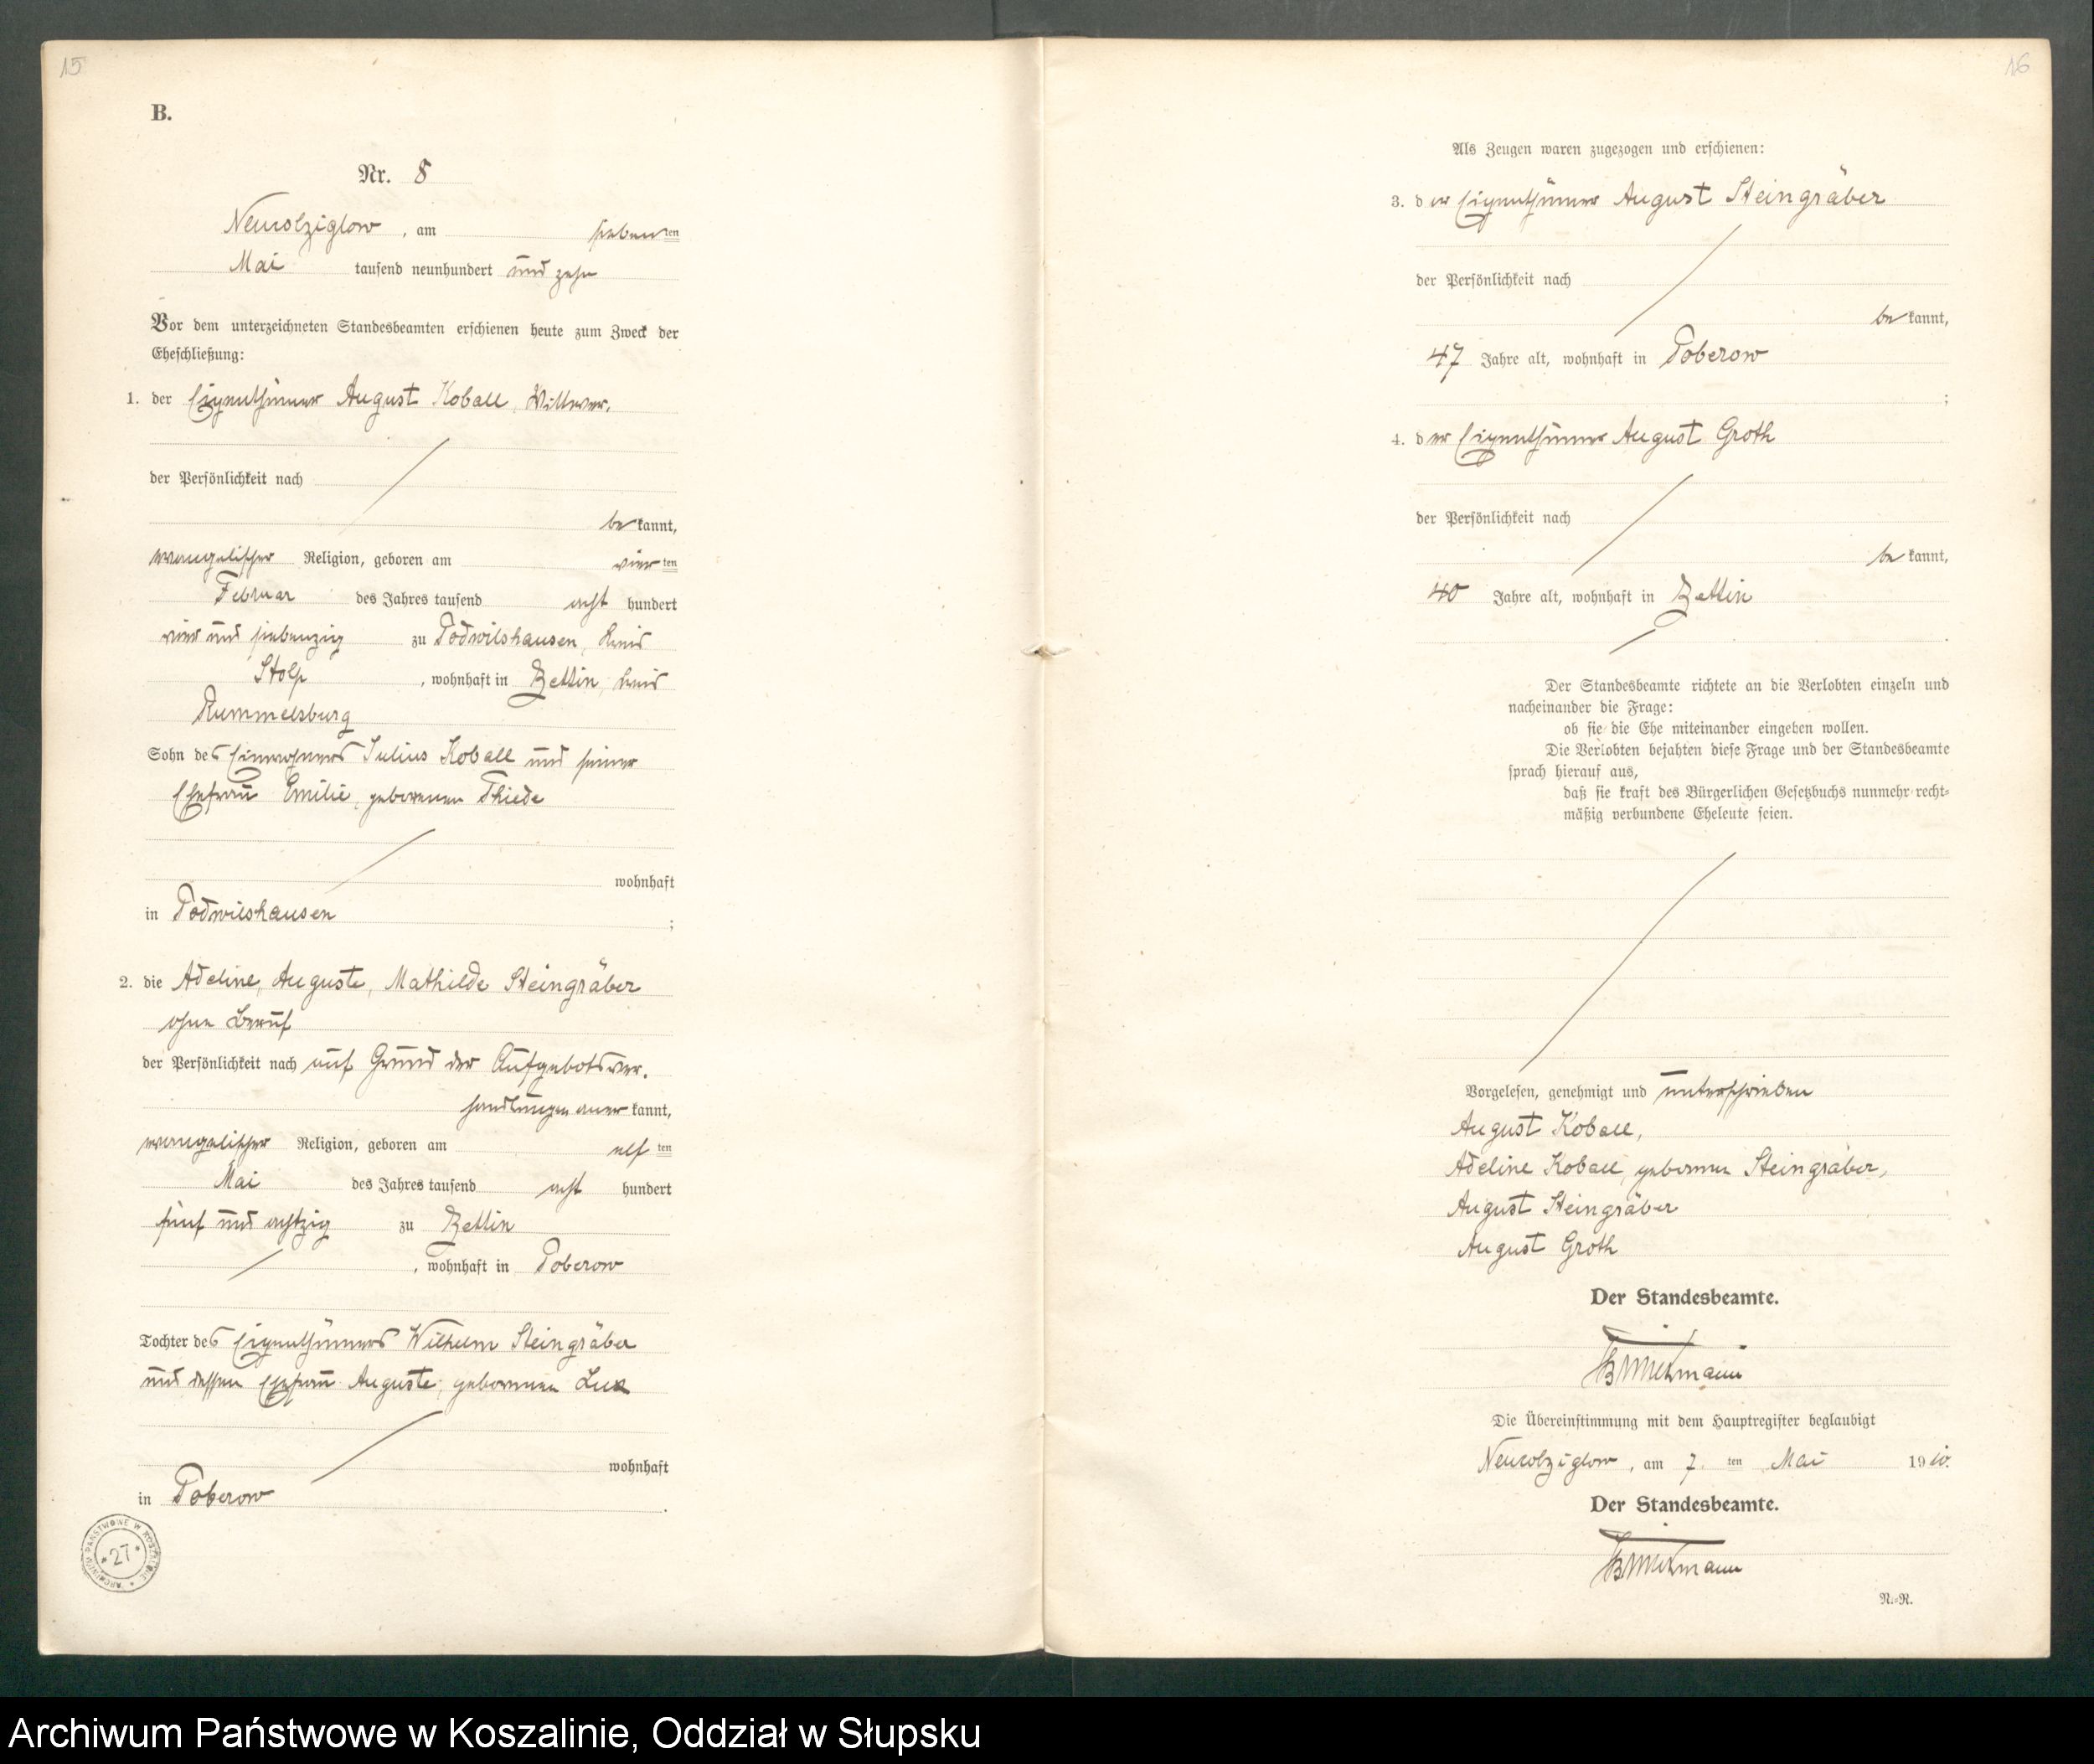 15
B.
Nr. 8
Neukolziglow, am siebenten
Mai tausend neunhundert und zehn
Vor dem unterzeichneten Standesbeamten erschienen heute zum Zweck der
Eheschließung:
1. der Eigenthümer August Koball, Wittwer,
der Persönlichkeit nach
bekannt,
evangelischer Religion, geboren am vierten
Februar des Jahres tausend acht hundert
vier und siebenzig zu Podwilshausen, Kreis
Stolp, wohnhaft in Zettin, Kreis
Rummelsburg
Sohn des Einwohners Julius Koball und seiner
Ehefrau Emilie, geborenen Thiede
wohnhaft
in Podwilshausen;
2. die Adeline, Auguste, Mathilde Steingräber
ohne Beruf
der Persönlichkeit nach auf Grund der Aufgebotsver-
handlungen anerkannt,
evangelischer Religion, geboren am elften
Mai des Jahres tausend acht hundert
fünf und achtzig zu Zettin
, wohnhaft in Poberow
Tochter des Eigenthümers Wilhelm Steingräber
und dessen Ehefrau Auguste, geborenen Lux
wohnhaft
in Poberow.
ARCHIWUM PAŃSTWOWE W KOSZALINIE
* 27 *
16
Als Zeugen waren zugezogen und erschienen:
3. der Eigenthümer August Steingräber
der Persönlichkeit nach
bekannt,
47 Jahre alt, wohnhaft in Poberow
;
4. der Eigenthümer August Groth
der Persönlichkeit nach
bekannt,
40 Jahre alt, wohnhaft in Zettin
.
Der Standesbeamte richtete an die Verlobten einzeln und
nacheinander die Frage:
ob sie die Ehe miteinander eingehen wollen.
Die Verlobten bejahten diese Frage und der Standesbeamte
sprach hierauf aus,
daß sie kraft des Bürgerlichen Gesetzbuchs nunmehr recht-
mäßig verbundene Eheleute seien.
Vorgelesen, genehmigt und unterschrieben
August Koball,
Adeline Koball, geborene Steingräber,
August Steingräber
August Groth
Der Standesbeamte.
Die Übereinstimmung mit dem Hauptregister beglaubigt
Neukolziglow, am 7. ten Mai 1910.
Der Standesbeamte.
N.-R.
Archiwum Państwowe w Koszalinie, Oddział w Słupsku